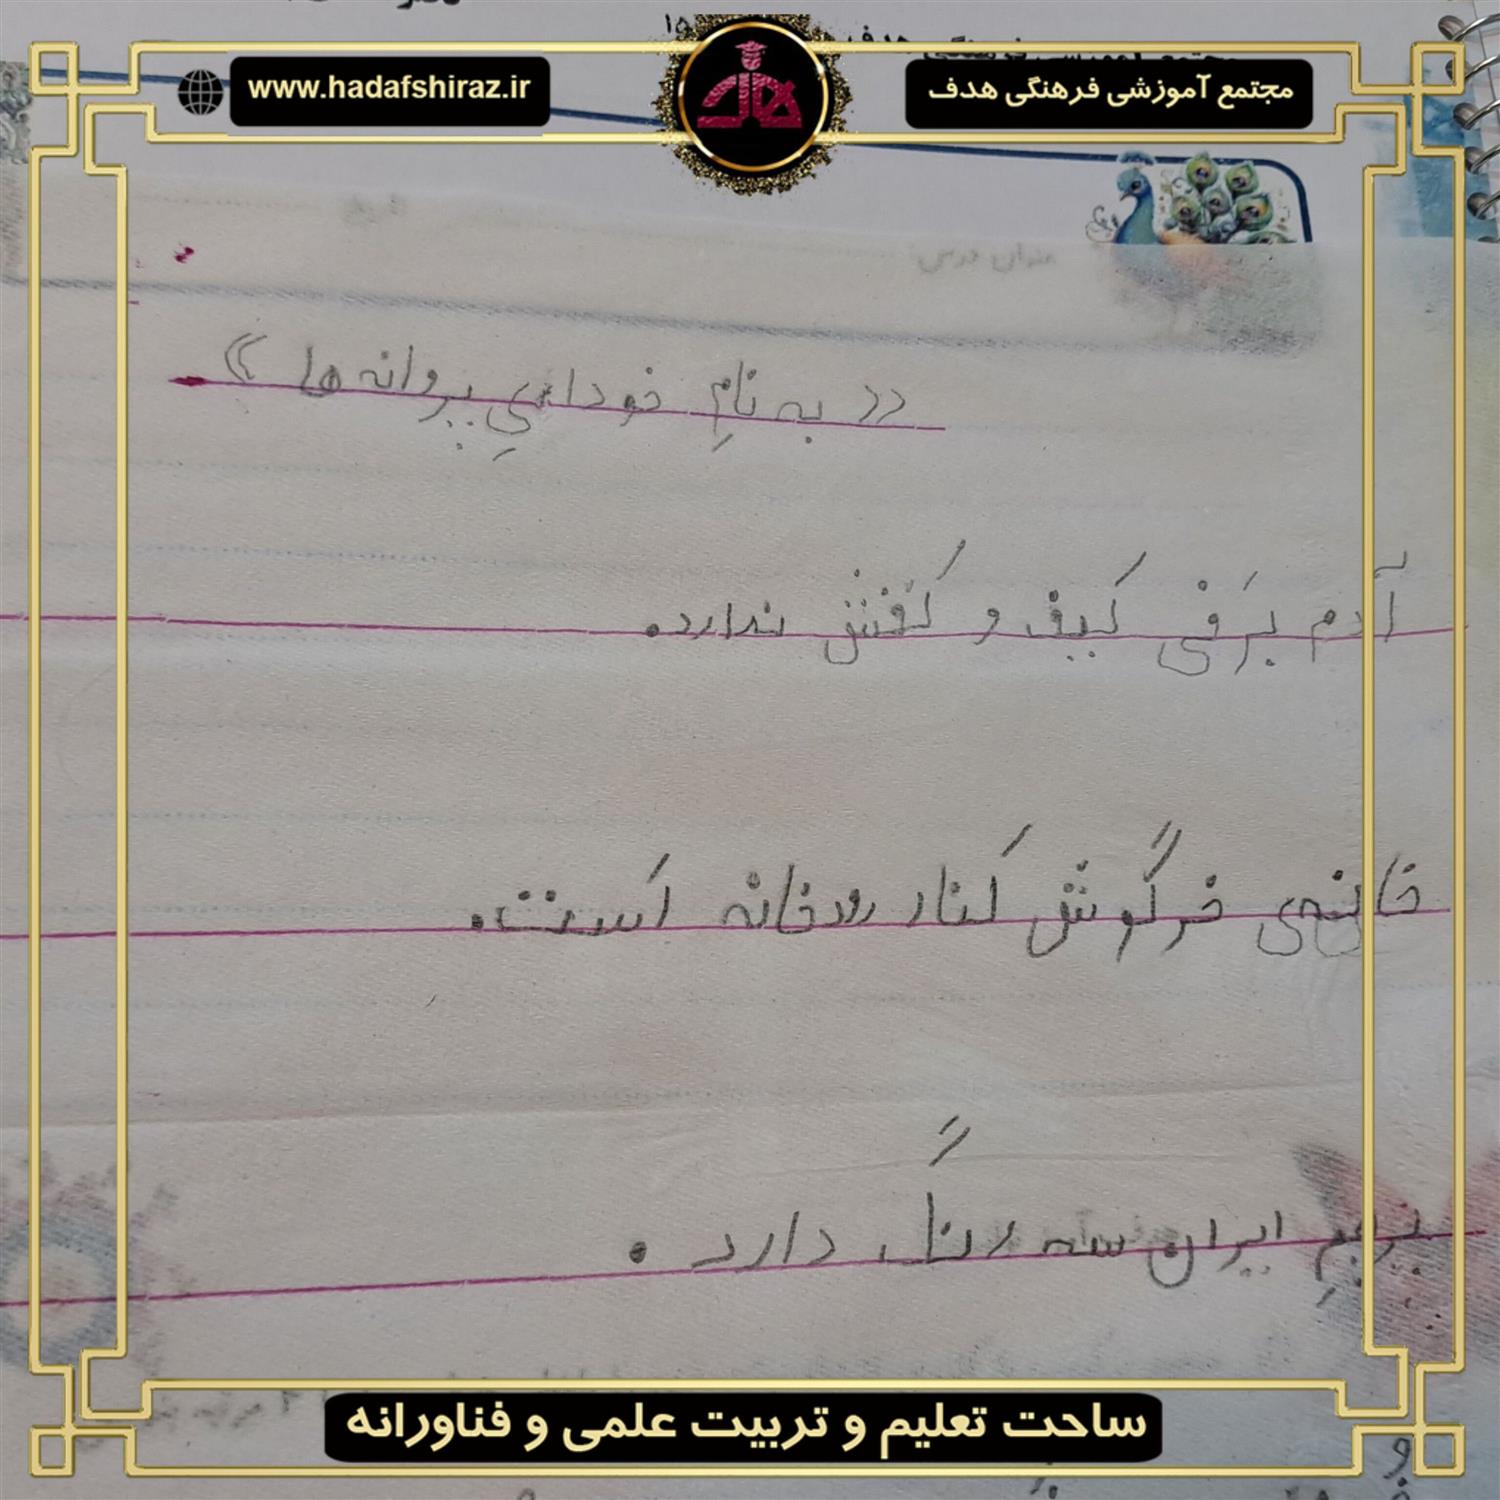 www.hadafshiraz.ir
مجتمع آموزشی فرهنگی هدف
عنوان درس:
(( به نامِ خودایِ پروانه ها ))
آدم بَرفی کیف و کَفش ندارد.
خانه‌ی خرگوش کنار رودخانه اَست.
پرچمِ ایران سه رنگ دارد.
ساحت تعلیم و تربیت علمی و فناورانه